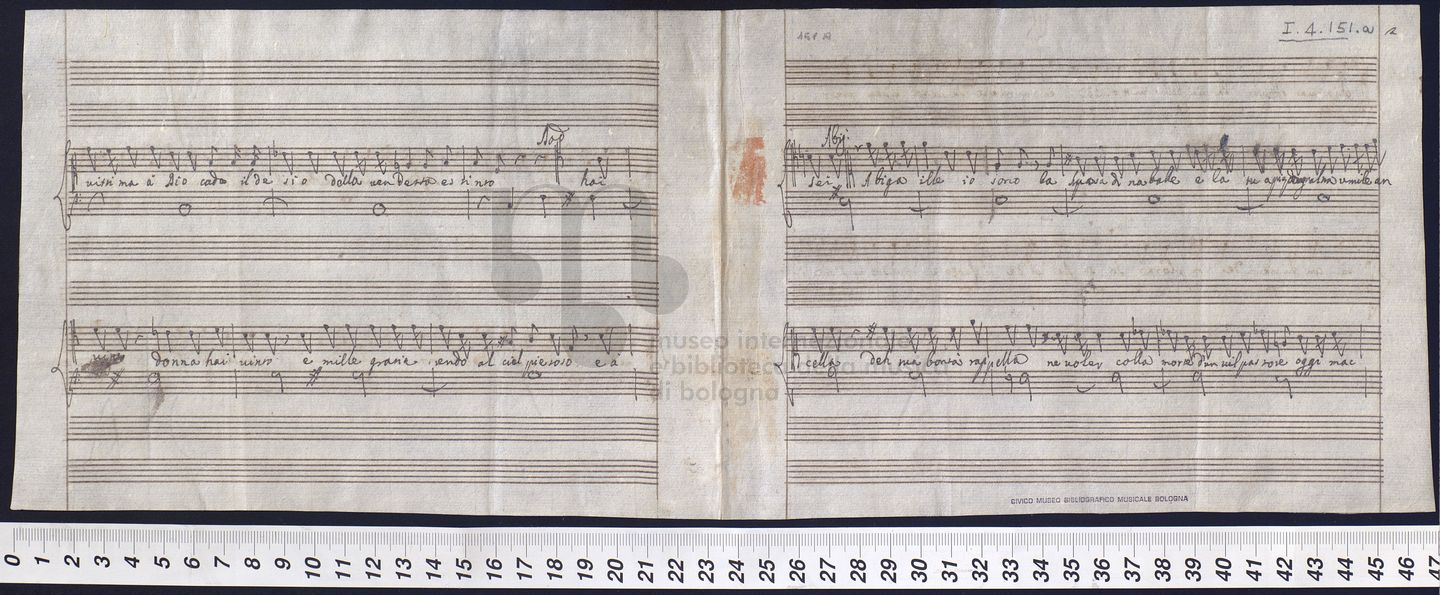 I. 4. 151. a
Dad
vittima a Dio cada il desio della vendetta estinto hai
donna hai vinto e mille grazie rendo al ciel pietoso e a
Abig:
sei Abigaille io sono la sposa di nabale e la tua umile an
cella Deh tua bontà rappella ne voler colla morte d'un vil pastore oggi mac
museo internazionale
e biblioteca della musica
di bologna
CIVICO MUSEO BIBLIOGRAFICO MUSICALE BOLOGNA
0 1 2 3 4 5 6 7 8 9 10 11 12 13 14 15 16 17 18 19 20 21 22 23 24 25 26 27 28 29 30 31 32 33 34 35 36 37 38 39 40 41 42 43 44 45 46 47